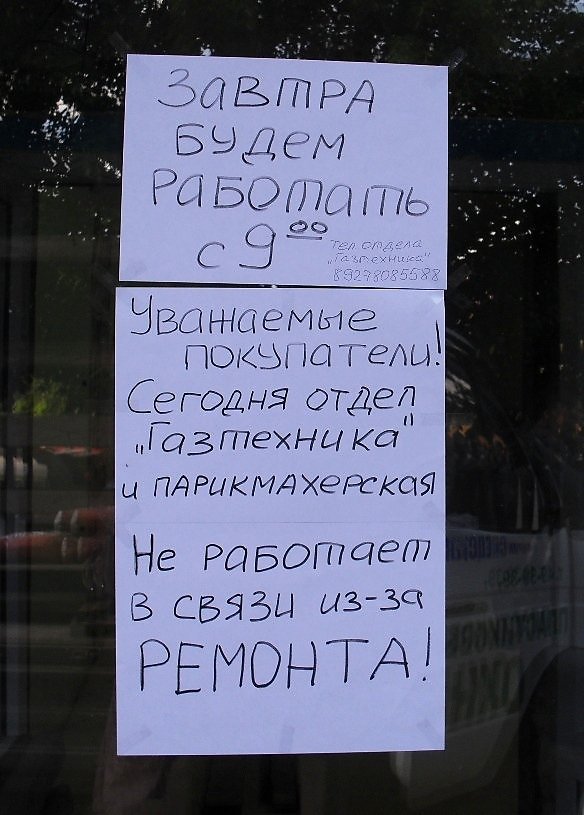 Завтра
будем
работать
с 9⁰⁰
тел отдела
„Газтехника"
89278085588
Уважаемые
покупатели!
Сегодня отдел
„Газтехника"
и парикмахерская
Не работает
в связи из-за
РЕМОНТА!